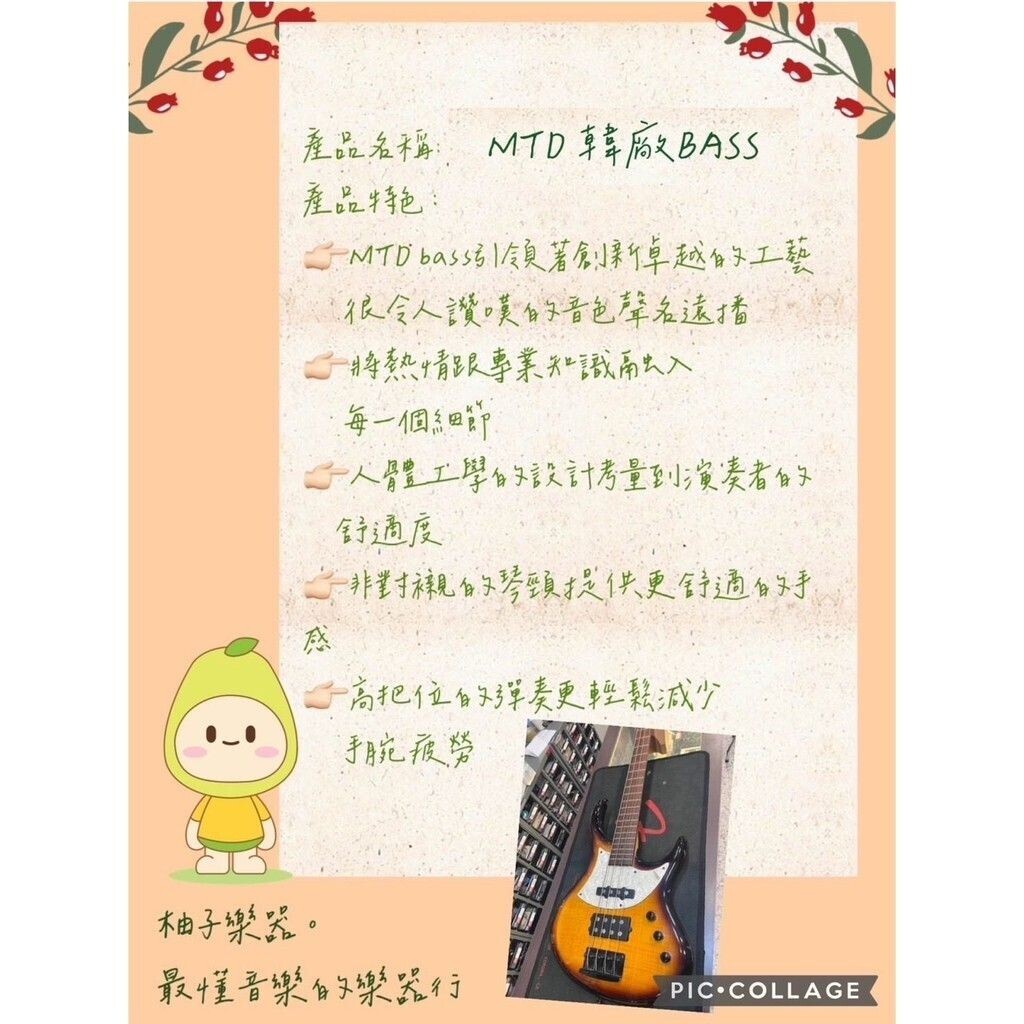 產品名稱: MTD 韓廠BASS
產品特色:
MTD bass引領著創新卓越的工藝
很令人讚嘆的音色聲名遠播
將熱情跟專業知識融入
每一個細節
人體工學的設計考量到演奏者的
舒適度
非對襯的琴頸提供更舒適的手
感
高把位的彈奏更輕鬆減少
手腕疲勞
柚子樂器。
最懂音樂的樂器行
PIC•COLLAGE